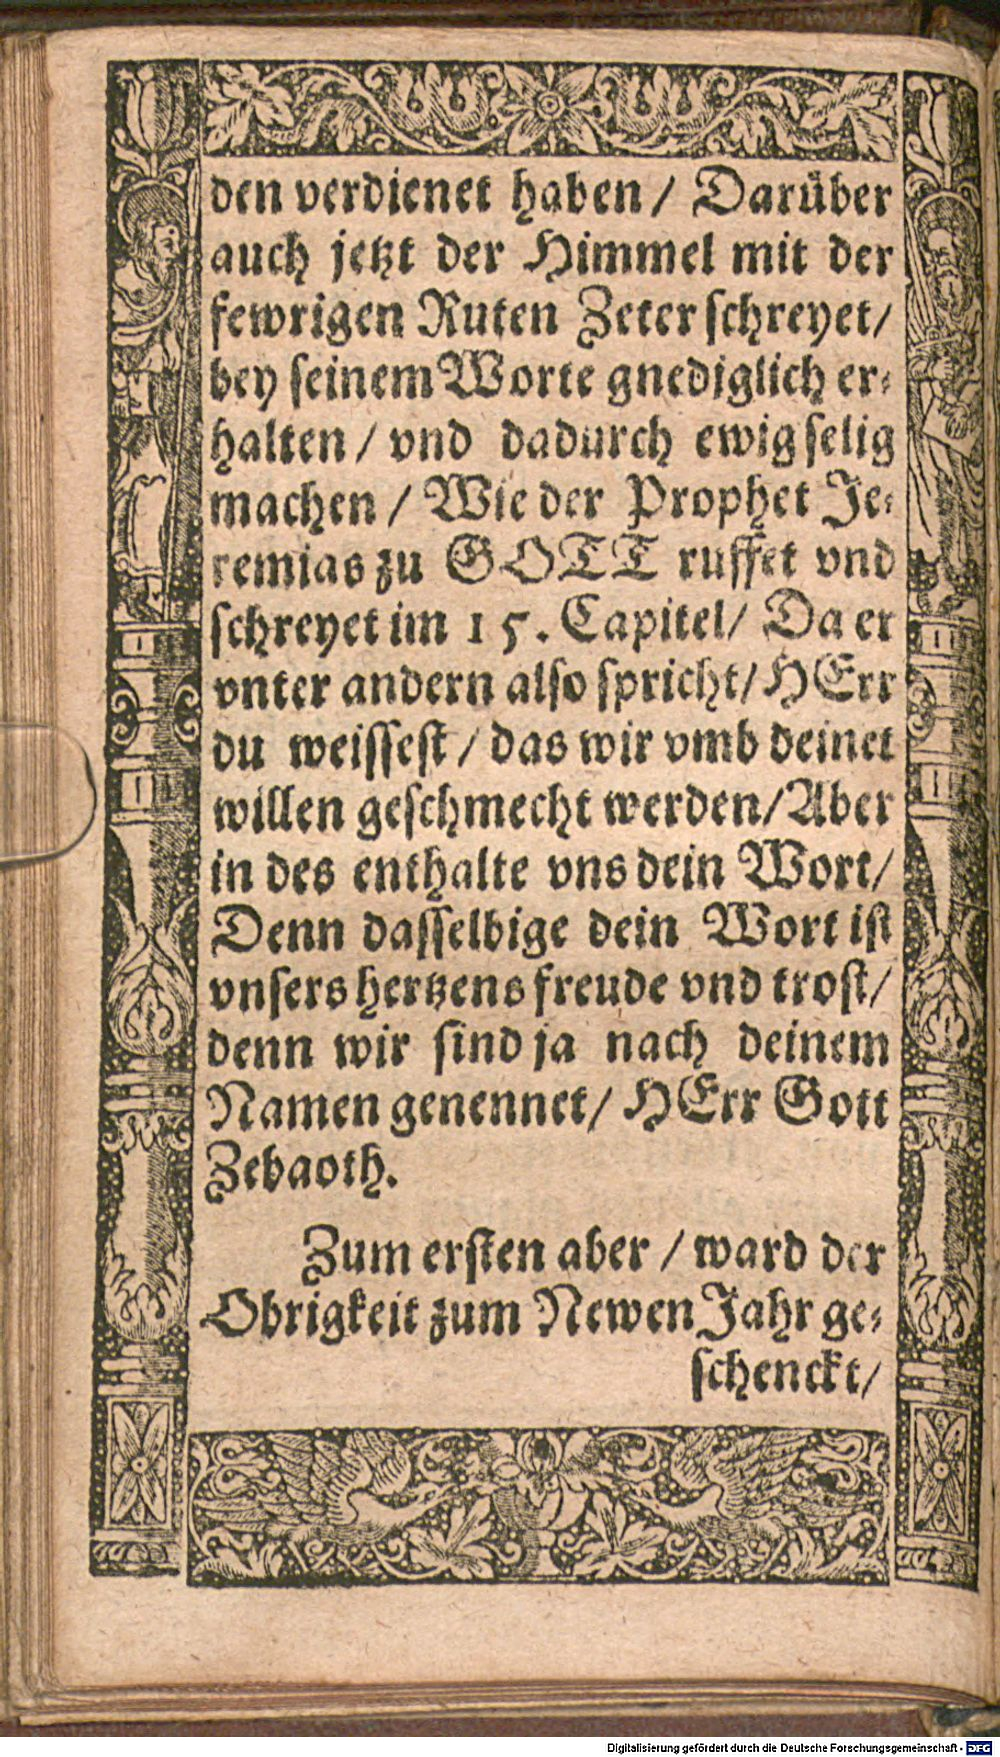 den verdienet haben / Darüber
auch jetzt der Himmel mit der
fewrigen Ruten Zeter schreyet/
bey seinem Worte gnediglich er⸗
halten / vnd dadurch ewig selig
machen / Wie der Prophet Je⸗
remias zu GOTT ruffet vnd
schreyet im 15. Capitel/ Da er
vnter andern also spricht/ HErr
du weissest / das wir vmb deinet
willen geschmecht werden/ Aber
in des enthalte vns dein Wort/
Denn dasselbige dein Wort ist
vnsers hertzens freude vnd trost/
denn wir sind ja nach deinem
Namen genennet/ HErr Gott
Zebaoth.
Zum ersten aber / ward der
Obrigkeit zum Newen Jahr ge⸗
schenckt/
Digitalisierung gefördert durch die Deutsche Forschungsgemeinschaft - DFG